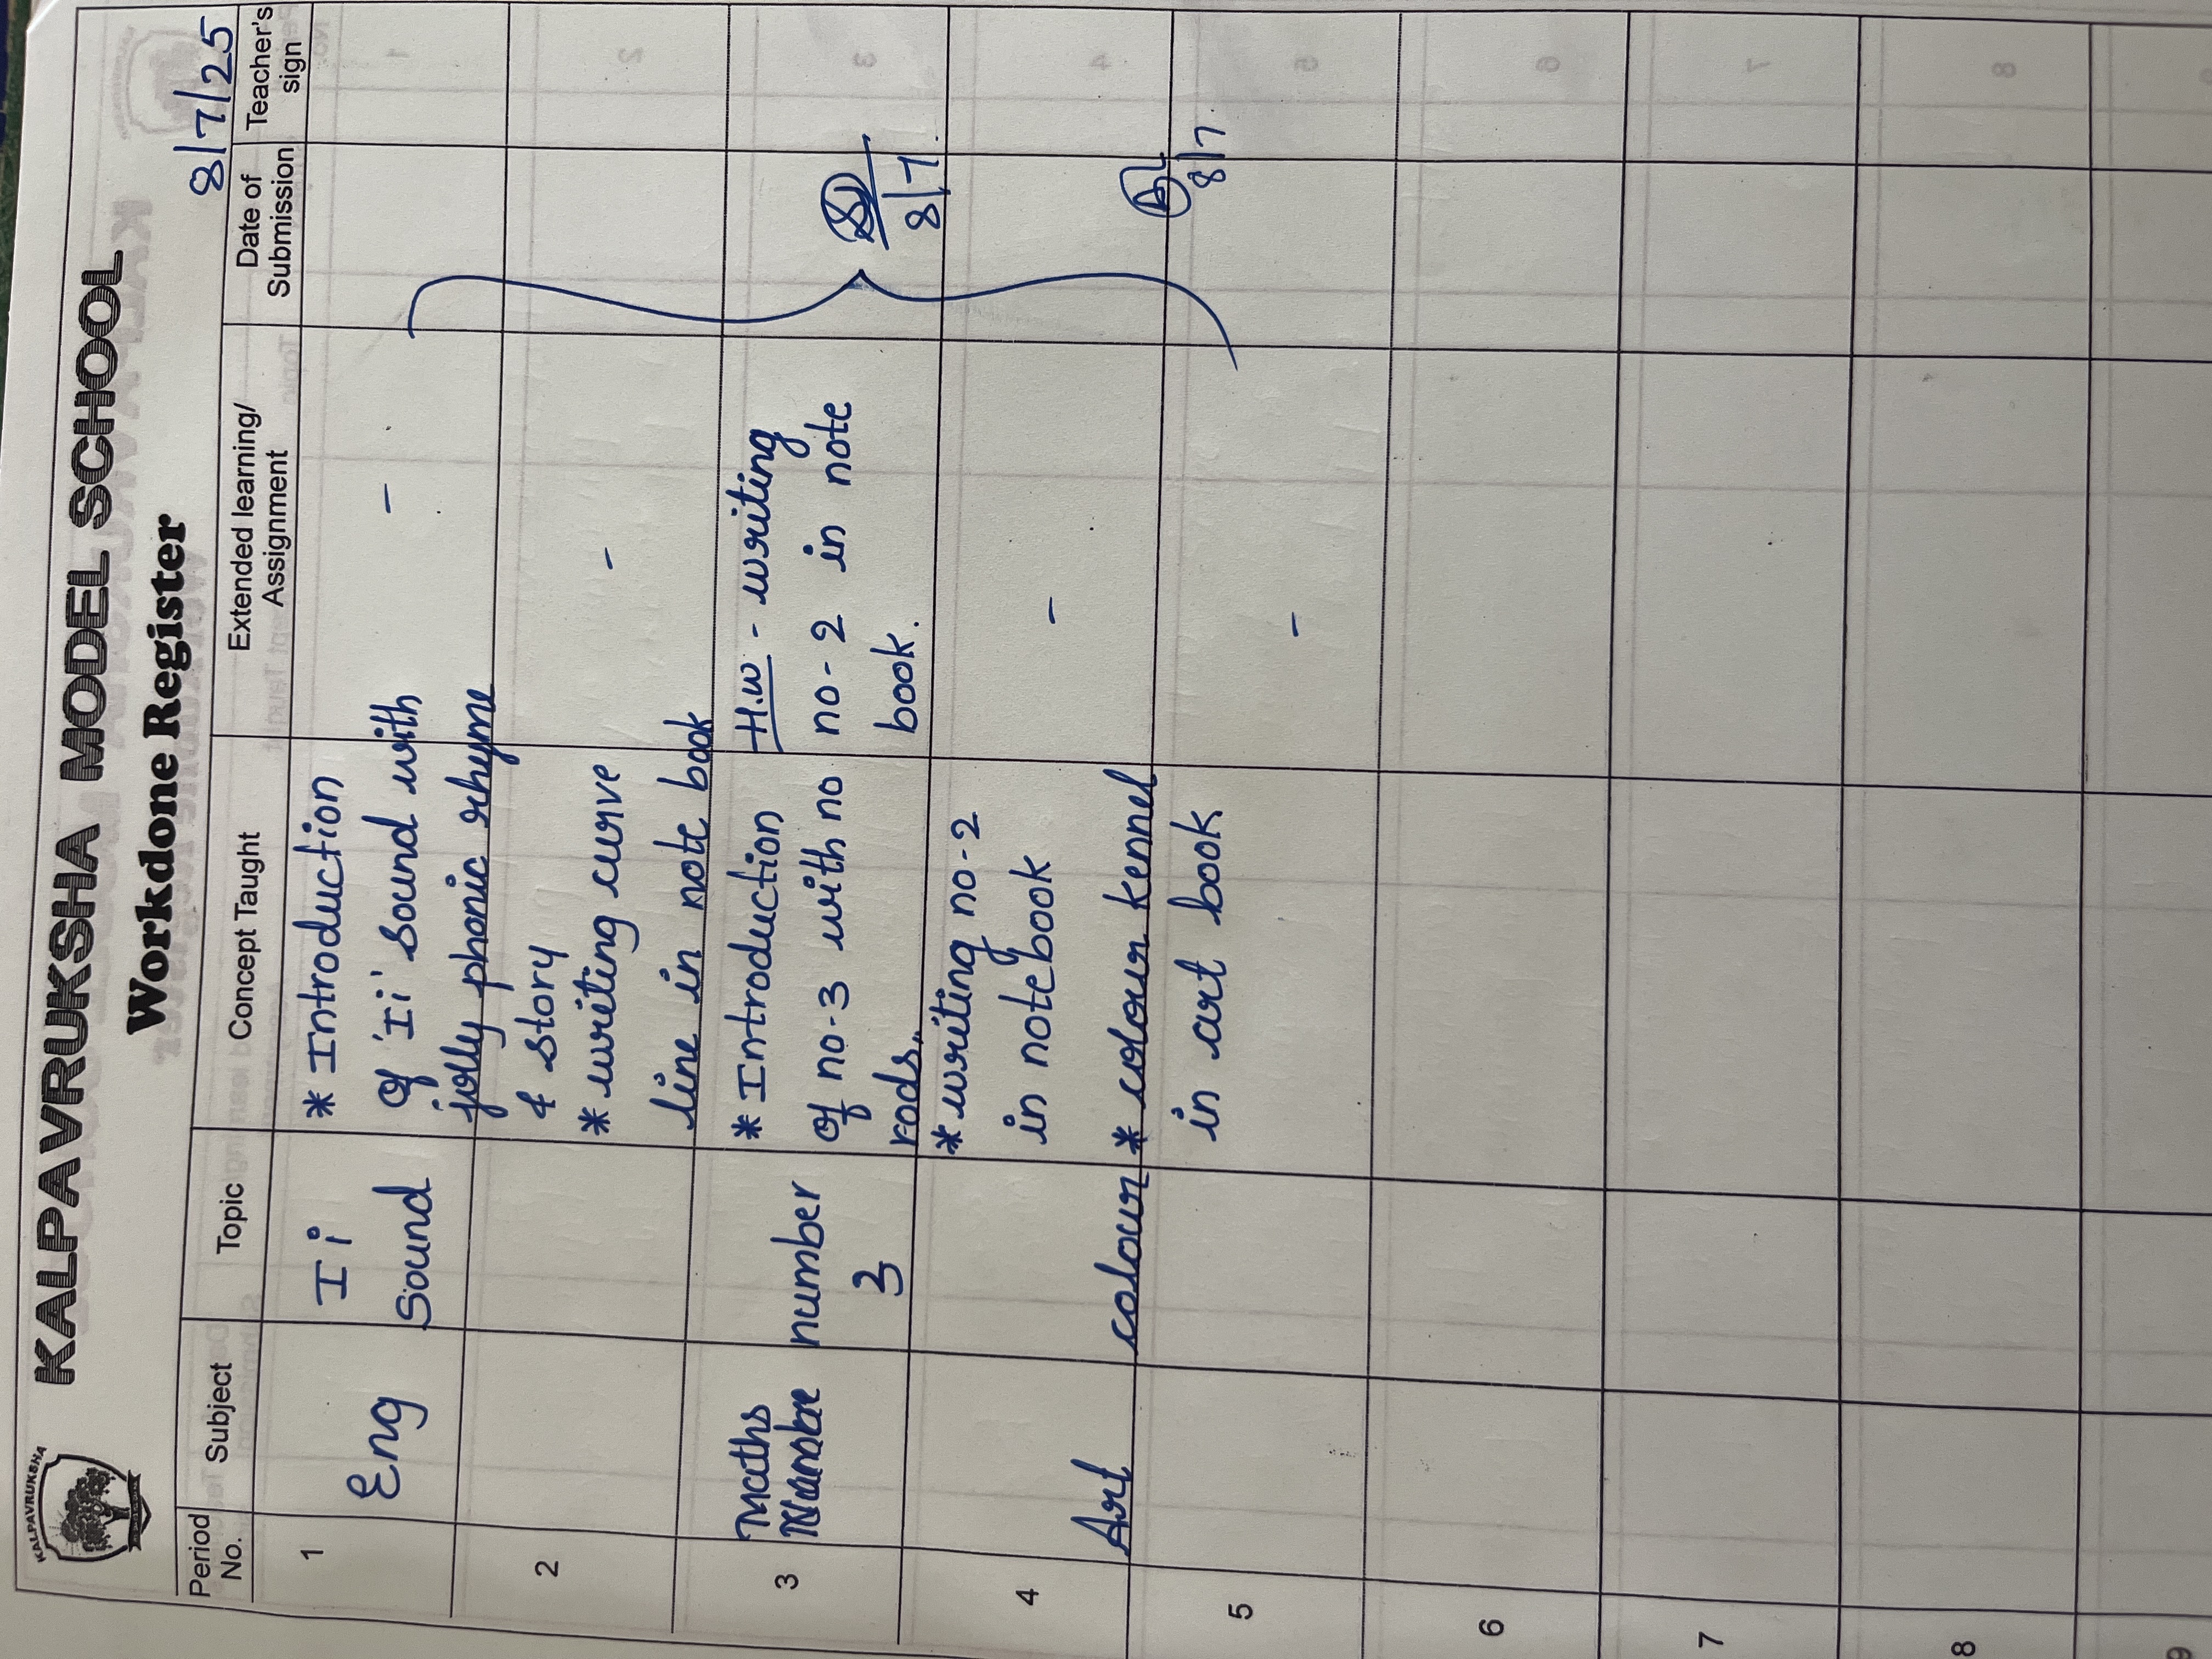 KALPAVRUKSHA
KALPAVRUKSHA MODEL SCHOOL
Workdone Register
8/7/25
Period No. Subject Topic Concept Taught Extended learning/ Assignment Date of Submission Teacher's sign
1 Eng I i * Introduction
Sound of 'Ii' sound with -
jolly phonic rhyme
2 & story
* writing curve -
line in note book
3 Maths number * Introduction H.W - writing
3 of no-3 with no no-2 in note
rods,, book.
8/7.
4 * writing no-2
in notebook -
Art colour * colour kennel
5 in art book -
8/7.
6
7
8
9